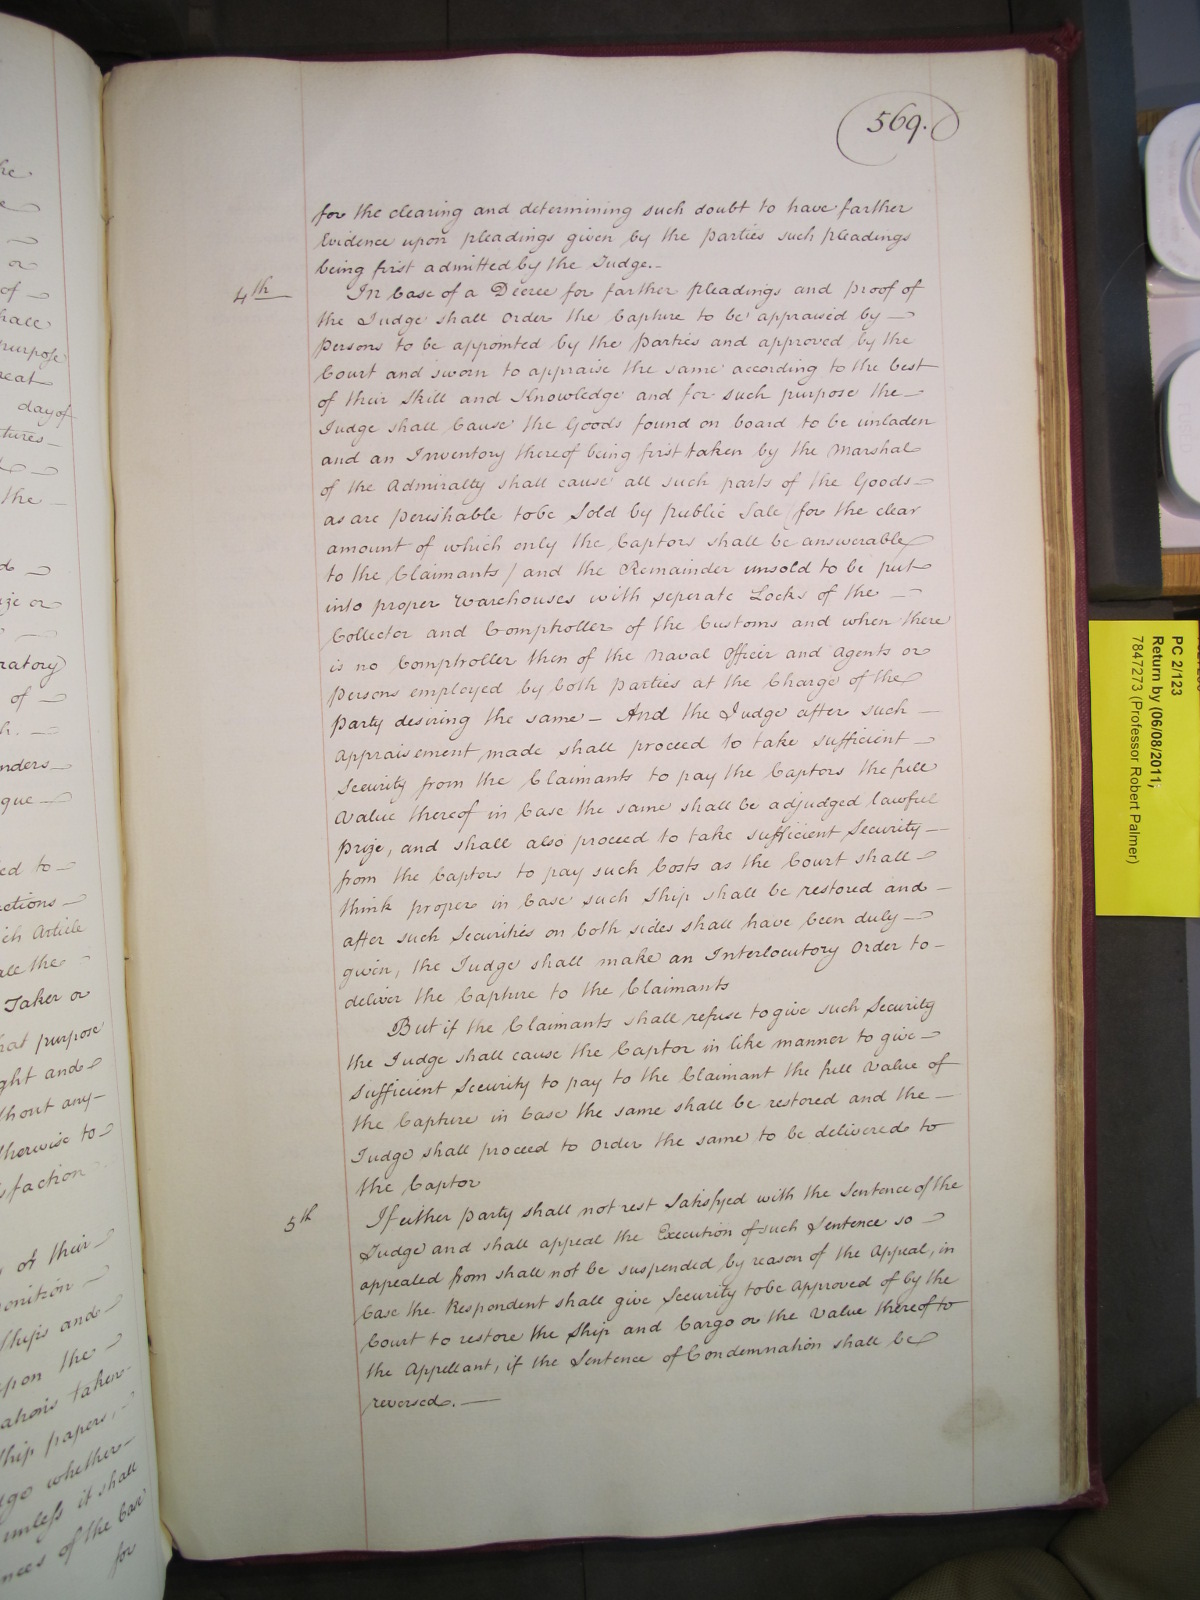 569.
for the clearing and determining such doubt to have farther
Evidence upon pleadings given by the Parties such pleadings
being first admitted by the Judge. —
4th In Case of a Decree for farther pleadings and proof of
the Judge shall Order the Capture to be appraised by —
Persons to be appointed by the Parties and approved by the
Court and sworn to appraise the same according to the best
of their Skill and Knowledge and for such purpose the —
Judge shall Cause the Goods found on board to be unladen
and an Inventory thereof being first taken by the Marshal
of the Admiralty shall cause all such parts of the Goods —
as are perishable to be Sold by public Sale (for the clear
amount of which only the Captors shall be answerable
to the Claimants) and the Remainder unsold to be put
into proper Warehouses with seperate Locks of the —
Collector and Comptroller of the Customs and when there
is no Comptroller then of the Naval Officer and Agents or
Persons employed by both Parties at the Charge of the
Party desiring the same — And the Judge after such —
Appraisement made shall proceed to take sufficient —
Security from the Claimants to pay the Captors the full
Value thereof in Case the same shall be adjudged lawful
Prize, and shall also proceed to take sufficient Security —
from the Captors to pay such Costs as the Court shall —
think proper in Case such Ship shall be restored and —
after such Securities on both sides shall have been duly —
given, the Judge shall make an Interlocutory Order to —
deliver the Capture to the Claimants
But if the Claimants shall refuse to give such Security
the Judge shall cause the Captor in like manner to give —
Sufficient Security to pay to the Claimant the full Value of
the Capture in Case the same shall be restored and the —
Judge shall proceed to Order the same to be delivered to
the Captor
5th If either Party shall not rest Satisfyed with the Sentence of the
Judge and shall appeal the Execution of such Sentence so —
appealed from shall not be suspended by reason of the Appeal, in
Case the Respondent shall give Security to be Approved of by the
Court to restore the Ship and Cargo or the Value thereof to
the Appellant, if the Sentence of Condemnation shall be
reversed. —
PC 2/123
Return by (06/08/2011;
7847273 (Professor Robert Palmer)
or
of —
hall
purpose
day of
the —
ratory
of —
ed to —
ctions —
ch Article
Taker or
hat purpose
ght and
thout any —
therwise to
sfaction
of their
onition
Ships and
upon the
ations taken
Ship papers, —
dge whether
unless it shall
nces of the Case
for